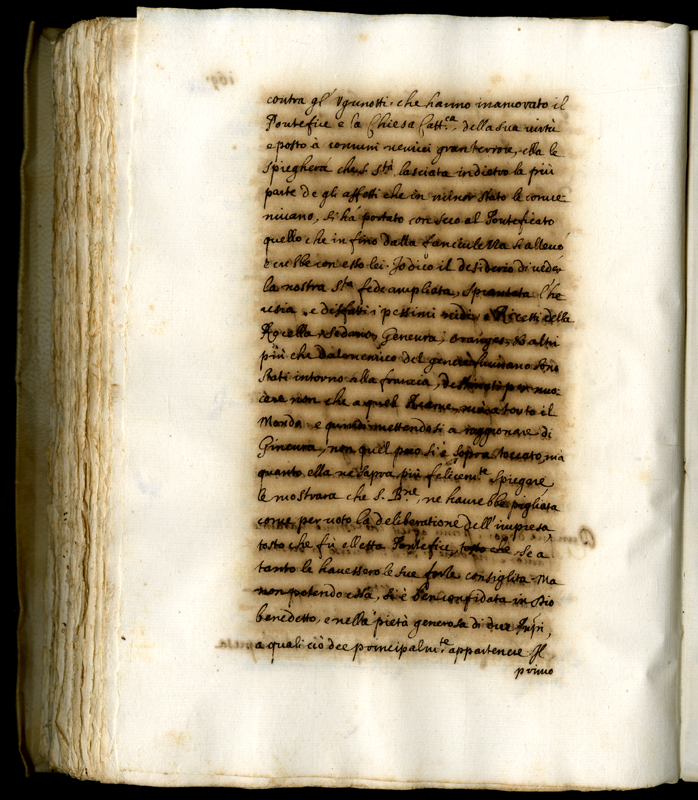 contra gl' Vgunotti, che hanno inamorato il
Pontefice e la Chiesa Catt.ca della sua virtù
e posto à comuni nemici gran terrore, ella le
spiegherà che S. Stà lasciata indietro la più
parte de gli affetti che in minor stato le conue-
niuano, si hà portato con seco al Ponteficato
quello che in fino dalla fanciulezza si alleuò
e crebbe con esso lei. Io dico il desiderio di ueder
la nostra Sta fede ampliata, spiantata l'he
resia, e disfatti i pessimi nidi, e Ricetti della
Rocella, Sedano, Geneura, Oranges, et altri
più che dal nemico del genere humano sono
stati intorno alla francia, destinati per nuo-
cere non che à quel Reame, mà à tutto il
Mondo e quindi mettendosi a raggionare di
Gineura, non quel poco si è sopra toccato, mà
quanto ella ne saprà più felicem.te spiegare
le mostrarà che S. B.ne, ne haurebbe pigliata
come per uoto la deliberatione dell'impresa
tosto che fù elletta Pontefice, tosto che se a
tanto le hauessero le sue forze consiglita. Ma
non potendo essa, si è ben confidata in Dio
benedetto, e nella pietà generosa di due
a quali ciò dee principalm.te appartenere Il
primo